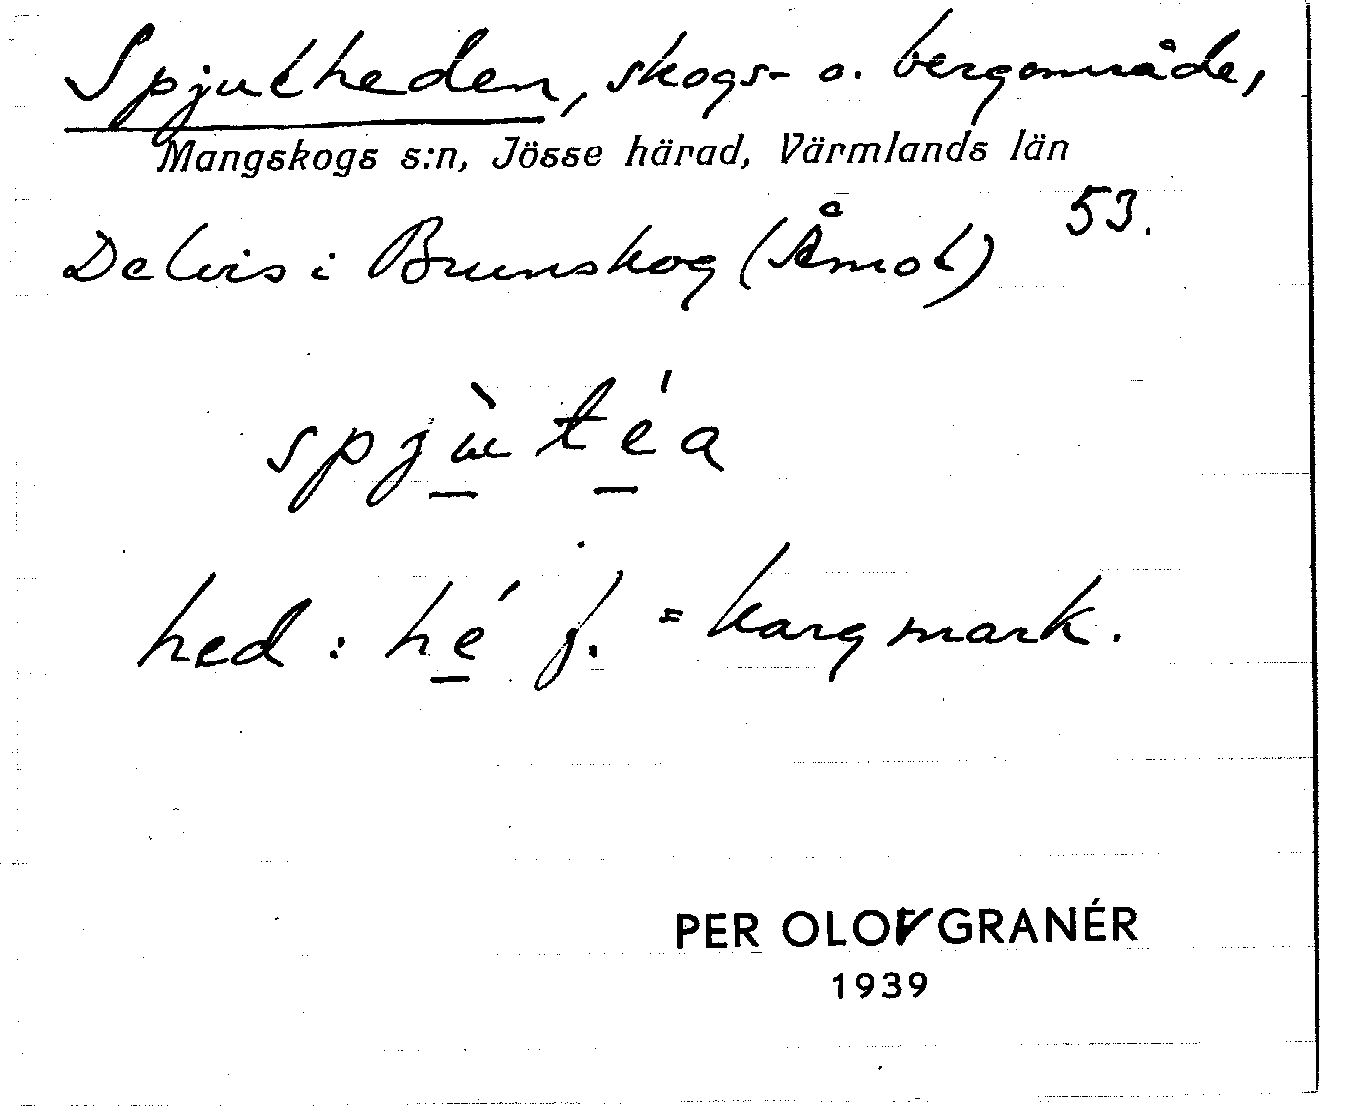 Spjutheden, skogs- o. bergområde,
Mangskogs s:n, Jösse härad, Värmlands län
53.
Delvis i Brunskog (Åmot)
spjùtéa
hed: hé f. = karg mark.
PER OLOV GRANÉR
1939